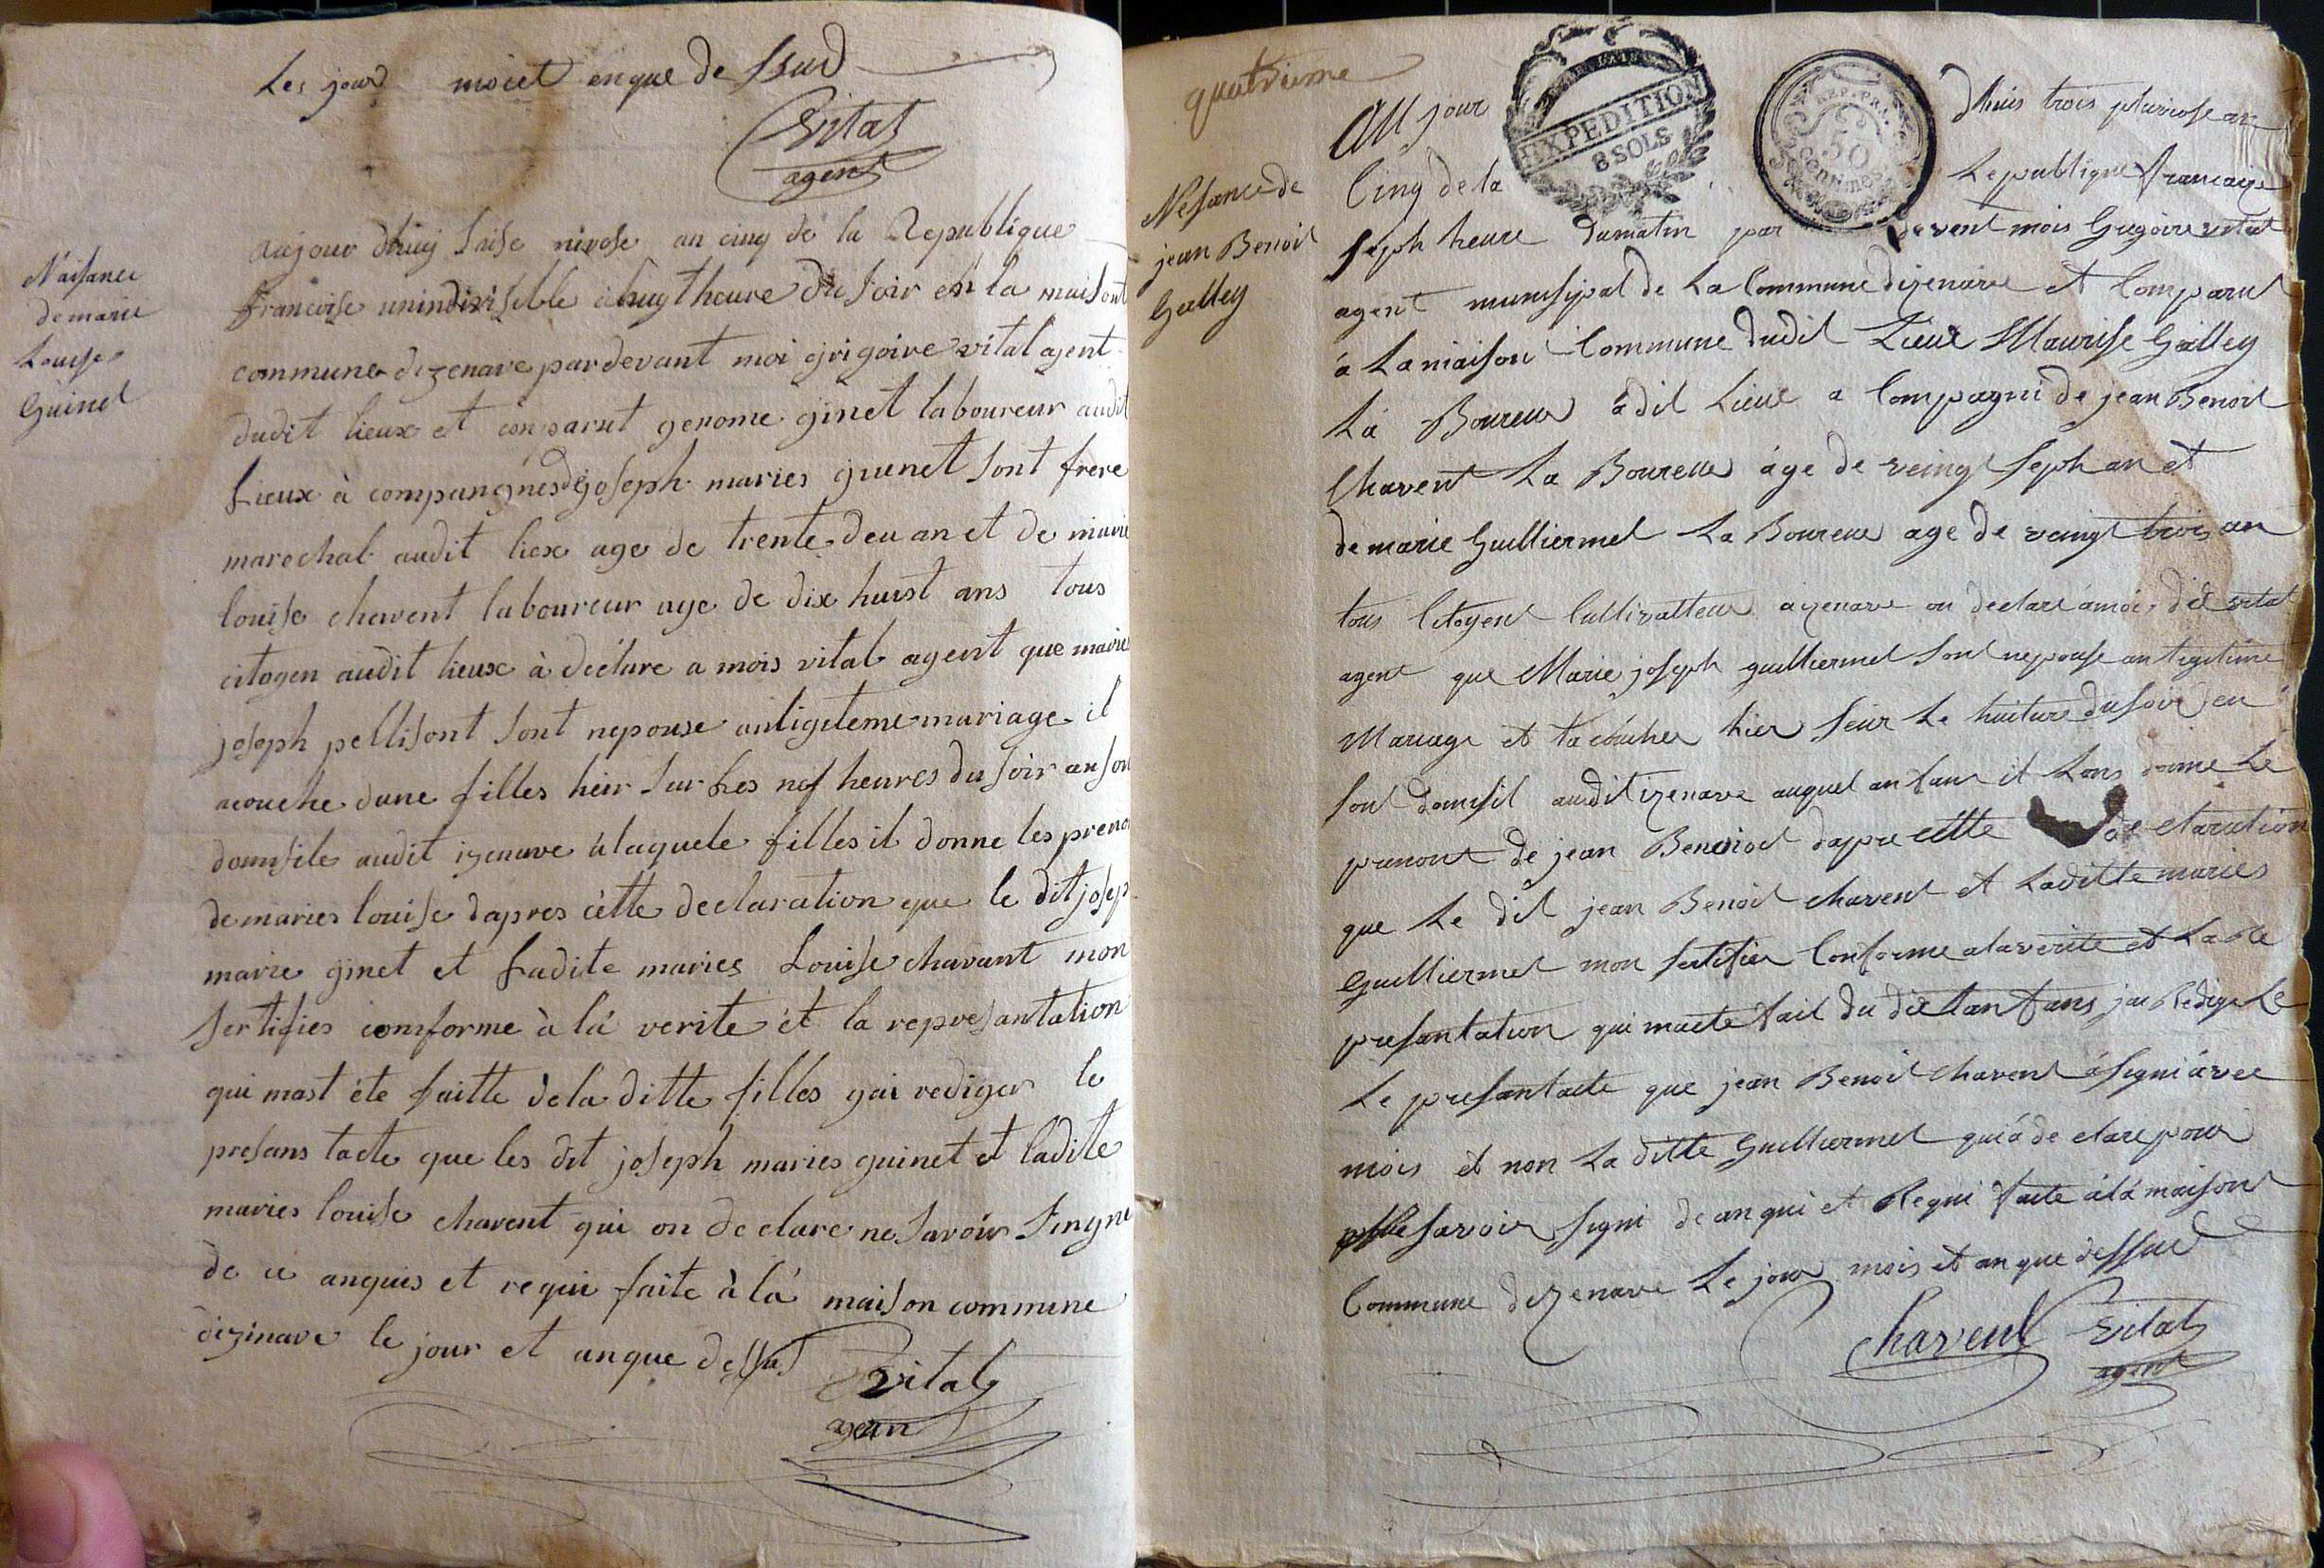 Les jour moiet enque de ssud
Vital
agent
Naissance
de marie
Louise
Guinet
aujour dhuij saise nivose an cinq de la Republique
francoise unindivisible à huyt heure du soir en la maisont
commune dizenave pardevant moi grigoire vital agent
dudit lieux et conparut genome ginet laboureur audit
Lieux à compangnes de joseph maries guenet sont frere
marechal audit liex age de trente deu an et de marie
louise chavent laboureur age de dix huist ans tous
citogen audit lieux à déclare a mois vital agent que marie
joseph pellisont sont nepouse anligeteme mariage il
acouche dune filles heir sur Les nef heures du soir an son
domisile audit izenave à laquele filles il donne les preno
de maries louise dapres cètte declaration que le dit josep
marie ginet et Ladite maries Louise chavant mon
sertifies comforme à là verite èt la represantation
qui mast éte faitte dela ditte filles gai rediger le
presans tacte que les dit joseph maries guinet et ladite
maries louise chavent qui on declare ne savoir singne
de ce anquis et requi faite à là maison commune
dizinave le jour et anque dessus
vital
agean
quatrieme
EXPEDITION
8 SOLS
REP. FRA.
50
centimes
Nésance de
jean Benoit
Galley
Au jour dhuis trois pluviose an
Cinq de la Republique francaise
seph heure dumatin par devent mois Gregoire vital
agent munisipal de La Commune dizenave et Comparut
à La maison Commune dudit Lieue Maurise Galley
La Boureur àdit Lieue a Compagni de jean Benoit
Chavent La Boureur áge de veingt seph an et
de marie Guilliermet La Boureur age de veingt trois an
tous Citogent Cultivatteur a izenave on declaré amois dit vital
agent que Marie joseph guilliermet sont nepouse an legitime
Mariage et tacoucher hier seur Le huiture du soir en
sont domisil audit izenave auquel anfant il Lons donné Le
prenont de jean Benoiot dapre cette declaration
que Le dit jean Benoit chavent et Laditte maries
Guilliermet mon sertifier Conforme alaverite et La Re
presantation qui maete fait du dit Lanfans jai Redige Le
Le presantacte que jean Benoit Chavent á signi ávec
mois et non La ditte Guilliermet qui á declare pour
savoir signi de anqui et Requi faite àlá maisont
Commune dizenave Le jour mois et an que dessue
Chavent Vital
agent